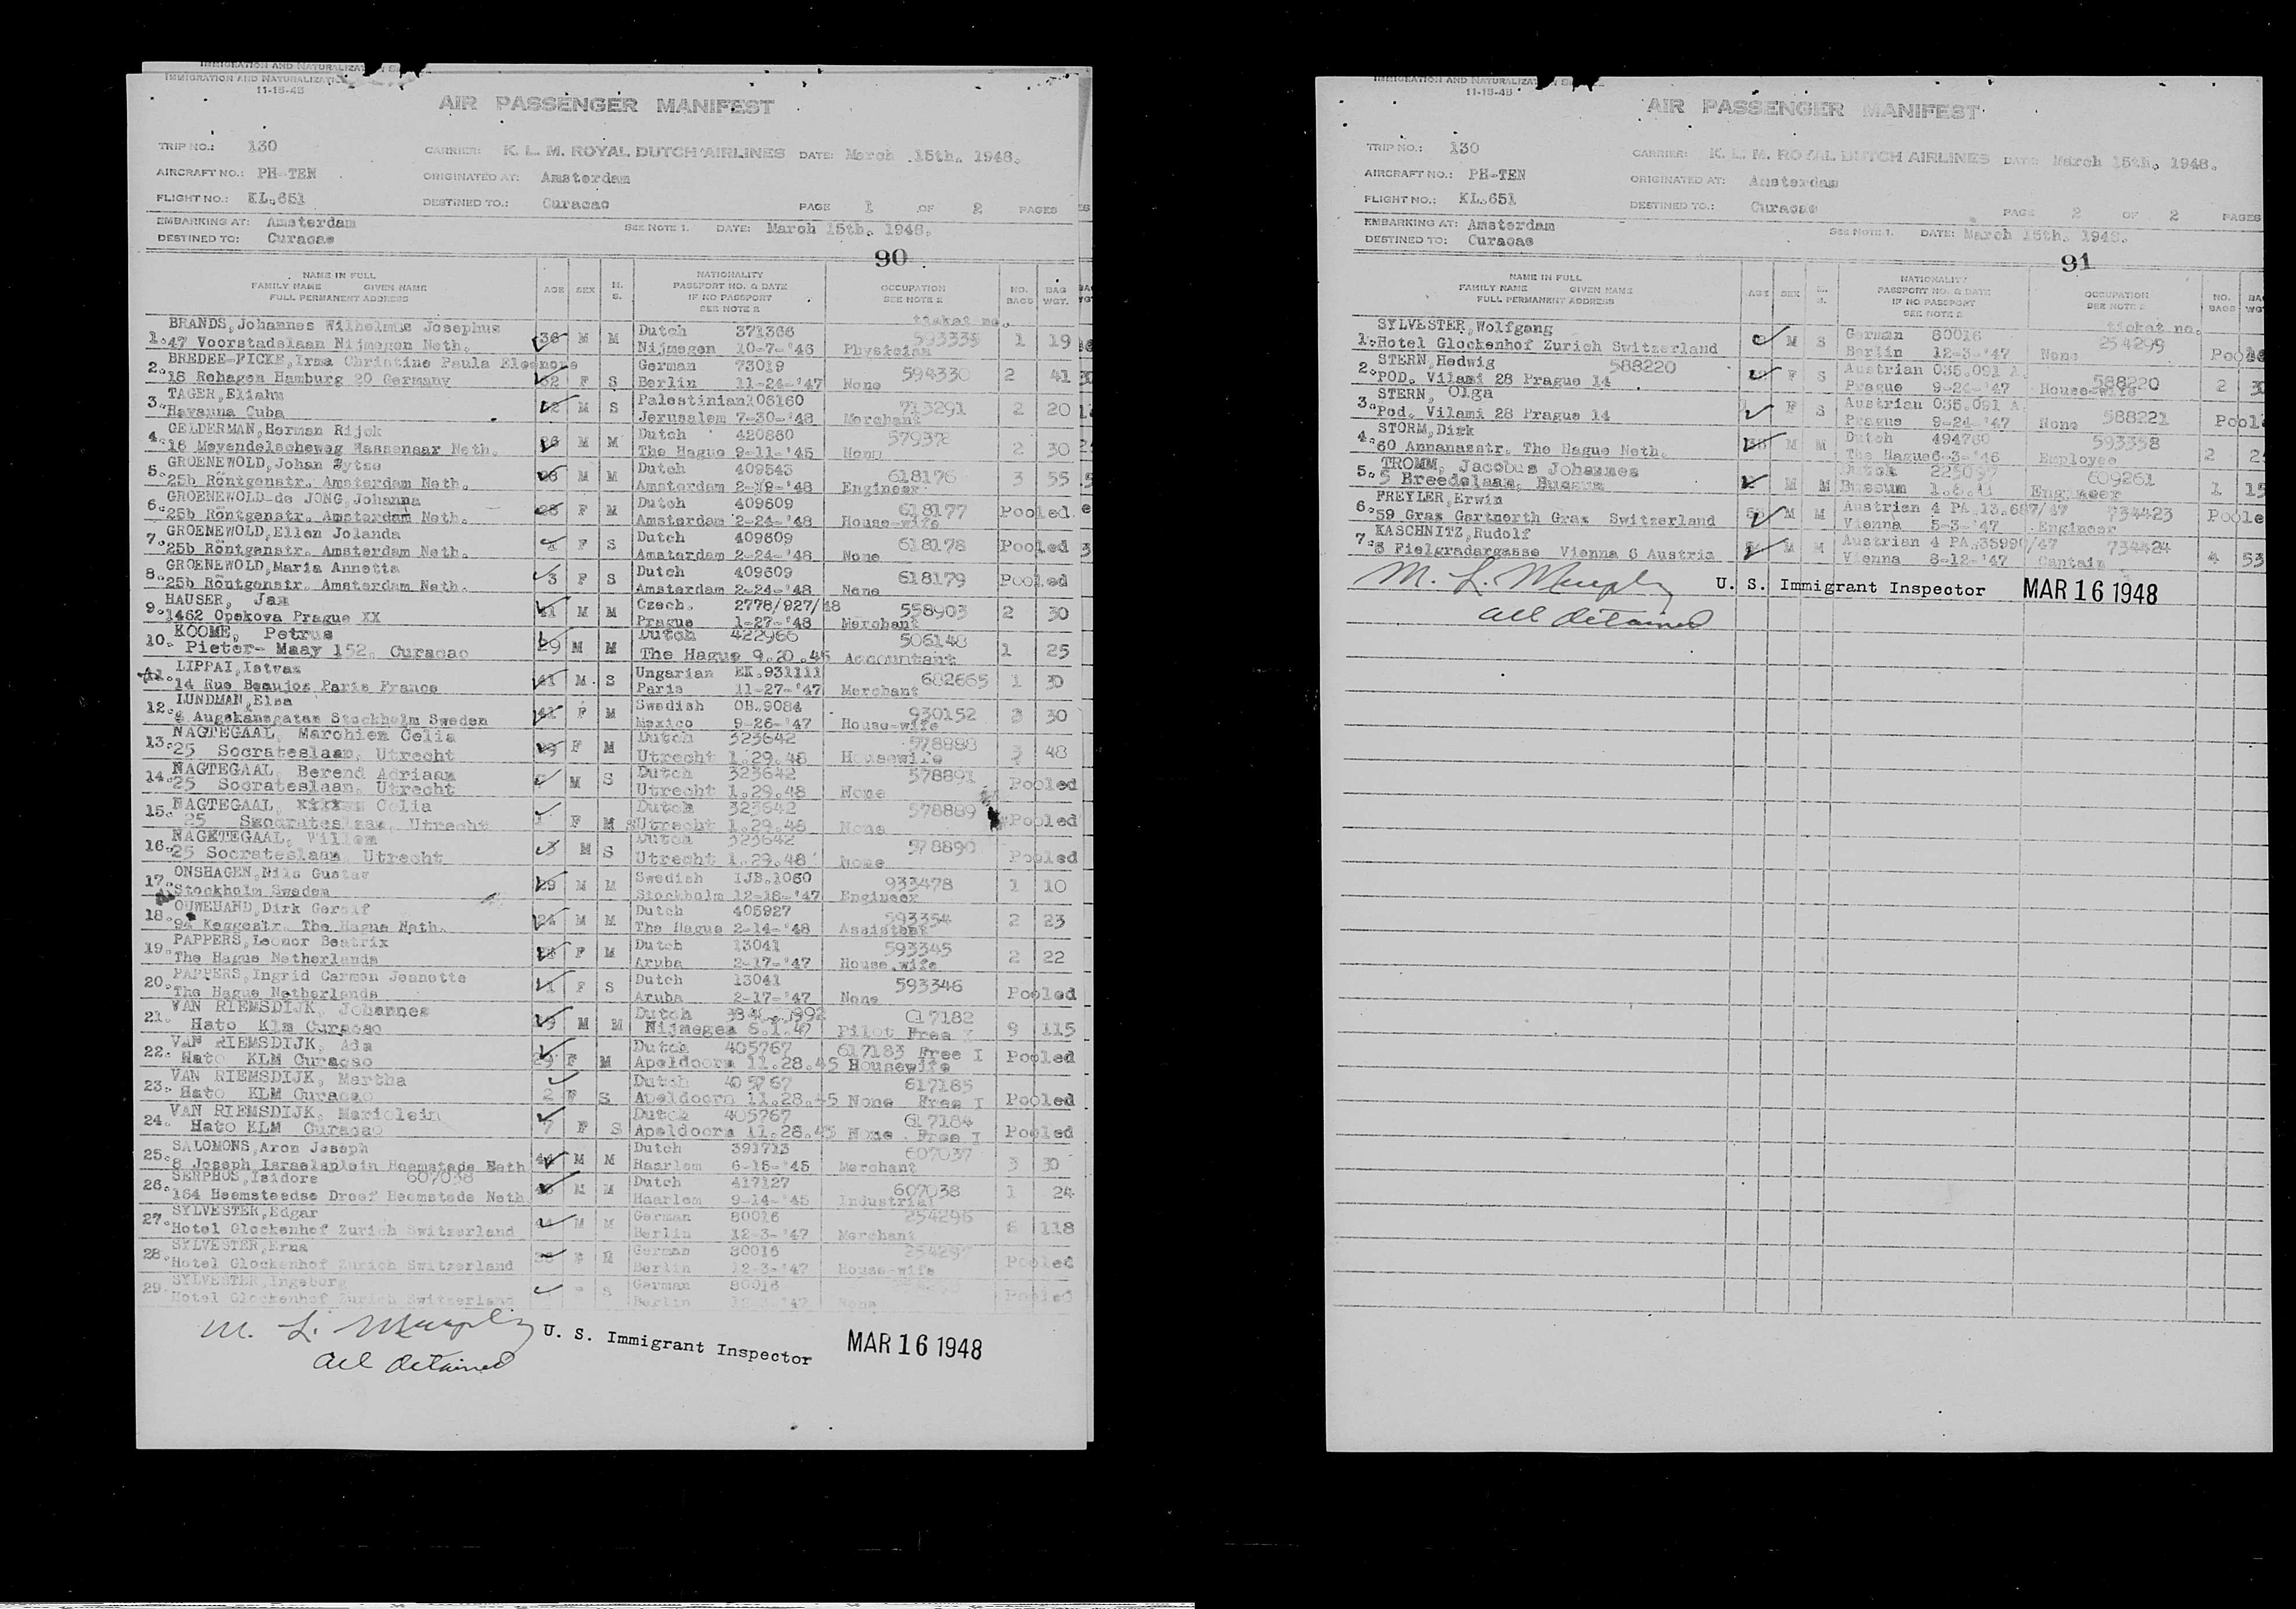 IMMIGRATION AND NATURALIZATION
11-15-45
AIR PASSENGER MANIFEST
TRIP NO.: 130 CARRIER: K. L. M. ROYAL DUTCH AIRLINES DATE: March 15th. 1948.
AIRCRAFT NO.: PH-TEN ORIGINATED AT: Amsterdam
FLIGHT NO.: KL.651 DESTINED TO.: Curacao PAGE 1 OF 2 PAGES
EMBARKING AT: Amsterdam SEE NOTE 1. DATE: March 15th. 1948.
DESTINED TO: Curacao
90
NAME IN FULL
FAMILY NAME GIVEN NAME
FULL PERMANENT ADDRESS
AGE SEX M. S.
NATIONALITY
PASSPORT NO. & DATE
IF NO PASSPORT
SEE NOTE 2
OCCUPATION
SEE NOTE 2
NO. BAGS BAG WGT.
ticket no.
BRANDS,Johannes Wilhelmus Josephus Dutch 371366 593335
1. 47 Voorstadslaan Nijmegen Neth. 36 M M Nijmegen 10-7-'46 Physician 1 19
BREDEE-FICKE,Irma Christine Paula Eleonore German 73019 594330
2. 18 Rehagen Hamburg 20 Germany 32 F S Berlin 11-24-'47 None 2 41
TAGER,Eliahu Palestinian106160 713291
3. Havanna Cuba M S Jerusalem 7-30-'48 Merchant 2 20
GELDERMAN,Herman Rijck Dutch 420860 579378
4. 16 Meyendelscheweg Wassenaar Neth. 26 M M The Hague 9-11-'45 None 2 30
GROENEWOLD,Johan Sytze Dutch 409543 618176
5. 25b Röntgenstr. Amsterdam Neth. M M Amsterdam 2-19-'48 Engineer 3 55
GROENEWOLD-de JONG,Johanna Dutch 409609 618177
6. 25b Röntgenstr. Amsterdam Neth. 28 F M Amsterdam 2-24-'48 House-wife Pooled
GROENEWOLD,Ellen Jolanda Dutch 409609 618178
7. 25b Röntgenstr. Amsterdam Neth. F S Amsterdam 2-24-'48 None Pooled
GROENEWOLD,Maria Annetta Dutch 409609 618179
8. 25b Röntgenstr. Amsterdam Neth. 3 F S Amsterdam 2-24-'48 None Pooled
HAUSER, Jan Czech. 2778/927/48 558903
9. 1462 Opekova Prague XX 41 M M Prague 1-27-'48 Merchant 2 30
KOOME, Petrus Dutch 422966 506148
10. Pieter- Maay 152. Curacao 29 M M The Hague 9.20.45 Accountant 1 25
LIPPAI,Istvan Ungarian EK.931111 682665
11. 14 Rue Beaujos Paris France 41 M S Paris 11-27-'47 Merchant 1 30
LUNDMAN,Elsa Swedish OB.9084 930152
12. 4 Augskansgatan Stockholm Sweden 41 F M Mexico 9-26-'47 House-wife 3 30
NAGTEGAAL, Marchien Celia Dutch 323642 578888
13. 25 Socrateslaan, Utrecht F M Utrecht 1.29.48 Housewife 3 48
NAGTEGAAL, Berend Adriaan Dutch 323642 578891
14. 25 Socrateslaan, Utrecht M S Utrecht 1.29.48 None Pooled
NAGTEGAAL, Celia Dutch 323642 578889
15. 25 Smocrateslaan, Utrecht F M S Utrecht 1.29.48 None Pooled
NAGKTEGAAL, Willem Dutch 323642 578890
16. 25 Socrateslaan Utrecht 3 M S Utrecht 1.29.48 None Pooled
ONSHAGEN,Nils Gustav Swedish IJB.1060 933478
17. Stockholm Sweden 29 M M Stockholm 12-18-'47 Engineer 1 10
OUWEHAND,Dirk Gerolf Dutch 405927 593354
18. 94 Keggestr. The Hague Neth. 24 M M The Hague 2-14-'48 Assistent 2 23
PAPPERS,Leonor Beatrix Dutch 13041 593345
19. The Hague Netherlands F M Aruba 2-17-'47 House.wife 2 22
PAPPERS,Ingrid Carmen Jeanette Dutch 13041 593346
20. The Hague Netherlands 1 F S Aruba 2-17-'47 None Pooled
VAN RIEMSDIJK, Johannes Dutch 617182
21. Hato Klm Curacao M M Nijmegen 6.1.47 Pilot Free I 9 115
VAN RIEMSDIJK, Ada Dutch 405767 617183 Free I
22. Hato KLM Curacao 29 F M Apeldoorn 11.28.45 Housewife Pooled
VAN RIEMSDIJK, Martha Dutch 405767 617185
23. Hato KLM Curacao 2 F S Apeldoorn 11.28.45 None Free I Pooled
VAN RIEMSDIJK, Mariolein Dutch 405767 617184
24. Hato KLM Curacao 7 F S Apeldoorn 11.28.45 None Free I Pooled
SALOMONS,Aron Joseph Dutch 391713 607037
25. 8 Joseph Israelsplein Heemstede Neth 44 M M Haarlem 6-15-'45 Merchant 3 30
SERPHOS,Isidore 607038 Dutch 417127 607038
26. 164 Heemsteedse Dreef Heemstede Neth M M Haarlem 9-14-'45 Industrial 1 24
SYLVESTER,Edgar German 80016 254296
27. Hotel Glockenhof Zurich Switzerland M M Berlin 12-3-'47 Merchant 6 118
SYLVESTER,Erna German 80016
28. Hotel Glockenhof Zurich Switzerland F M Berlin 12-3-'47 House-wife Pooled
SYLVESTER,Ingeborg German 80016
29. Hotel Glockenhof Zurich Switzerland S Berlin None Pooled
M. L. Murphy U. S. Immigrant Inspector MAR 16 1948
all detained
IMMIGRATION AND NATURALIZATION
11-15-45
AIR PASSENGER MANIFEST
TRIP NO.: 130 CARRIER: K. L. M. ROYAL DUTCH AIRLINES DATE: March 15th. 1948.
AIRCRAFT NO.: PH-TEN ORIGINATED AT: Amsterdam
FLIGHT NO.: KL.651 DESTINED TO.: Curacao PAGE 2 OF 2 PAGES
EMBARKING AT: Amsterdam SEE NOTE 1. DATE: March 15th. 1948.
DESTINED TO: Curacao
91
NAME IN FULL
FAMILY NAME GIVEN NAME
FULL PERMANENT ADDRESS
AGE SEX M. S.
NATIONALITY
PASSPORT NO. & DATE
IF NO PASSPORT
SEE NOTE 2
OCCUPATION
SEE NOTE 2
NO. BAGS
ticket no.
SYLVESTER,Wolfgang German 80016 254299
1. Hotel Glockenhof Zurich Switzerland M S Berlin 12-3-'47 None
STERN,Hedwig 588220 Austrian 035.091 A. 588220
2. POD. Vilami 28 Prague 14 F S Prague 9-24-'47 House-wife 2
STERN, Olga Austrian 035.091 A. 588221
3. Pod. Vilami 28 Prague 14 F S Prague 9-24-'47 None
STORM,Dirk Dutch 494760 593358
4. 60 Annanasstr. The Hague Neth. M M The Hague6-3-'46 Employee 2
TROMM, Jacobus Johannes Dutch 609261
5. 5 Breedelaan, Bussum M M Bussum Engineer 1 15
FREYLER,Erwin Austrian 4 PA.13.687/47 734423
6. 59 Graz Gartnerth Graz Switzerland M M Vienna 5-3-'47 Engineer
KASCHNITZ,Rudolf Austrian 4 PA.35990/47 734424
7. 8 Fielgradargasse Vienna 6 Austria M M Vienna 8-12-'47 Captain 4 53
M. L. Murphy U. S. Immigrant Inspector MAR 16 1948
all detained